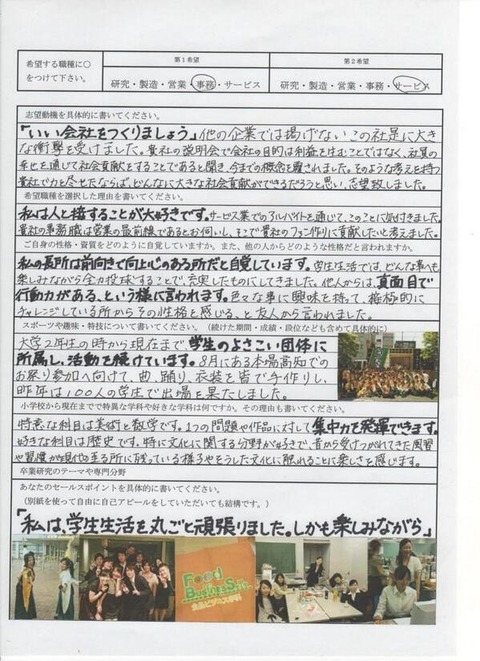 希望する職種に○
をつけて下さい。
第1希望
研究・製造・営業・事務・サービス
第2希望
研究・製造・営業・事務・サービス
志望動機を具体的に書いてください。
「いい会社をつくりましょう」他の企業では掲げないこの社是に大き
な衝撃を受けました。貴社の説明会で会社の目的は利益を生むことではなく、社員の
幸せを通じて社会貢献をすることであると聞き、今までの概念を覆されました。そのような考えを持つ
貴社で力を尽せたならば、どんなに大きな社会貢献ができるだろうと思い、志望致しました。
希望職種を選択した理由を書いてください。
私は人と接することが大好きです。サービス業でのアルバイトを通じて、このことに気付きました。
貴社の事務職は営業の最前線であるとお伺いし、そこで貴社のファン作りに貢献したいと考えました。
ご自身の性格・資質をどのように自覚していますか。また、他の人からどのような性格だと言われますか。
私の長所は前向きで向上心のある所だと自覚しています。学生生活では、どんな事へも
楽しみながら全力投球することで、充実したものにしてきました。他人からは、真面目で
行動力がある、という様に言われます。色々な事に興味を持って、積極的に
チャレンジしている所からその性格を感じる、と友人から言われました。
スポーツや趣味・特技について書いてください。(続けた期間・成績・段位なども含めて具体的に)
大学2年生の時から現在まで、学生のよさこい団体に
所属し、活動を続けています。8月にある本場高知での
お祭り参加へ向けて、曲、踊り、衣装を皆で手作りし、
昨年は100人の学生で出場を果たしました。
小学校から現在までで得意な学科や好きな学科は何ですか。その理由も書いてください。
得意な科目は美術と数学です。1つの問題や作品に対して集中力を発揮できます。
好きな科目は歴史です。特に文化に関する分野が好きで、昔から受けつがれてきた風習
や習慣が現代至る所に残っている様子やそうした文化に触れることに楽しさを感じます。
卒業研究のテーマや専門分野
あなたのセールスポイントを具体的に書いてください。
(別紙を使って自由に自己アピールをしていただいても結構です。)
「私は、学生生活を丸ごと頑張りました。しかも楽しみながら」
Food
Business
食品ビジネス学科